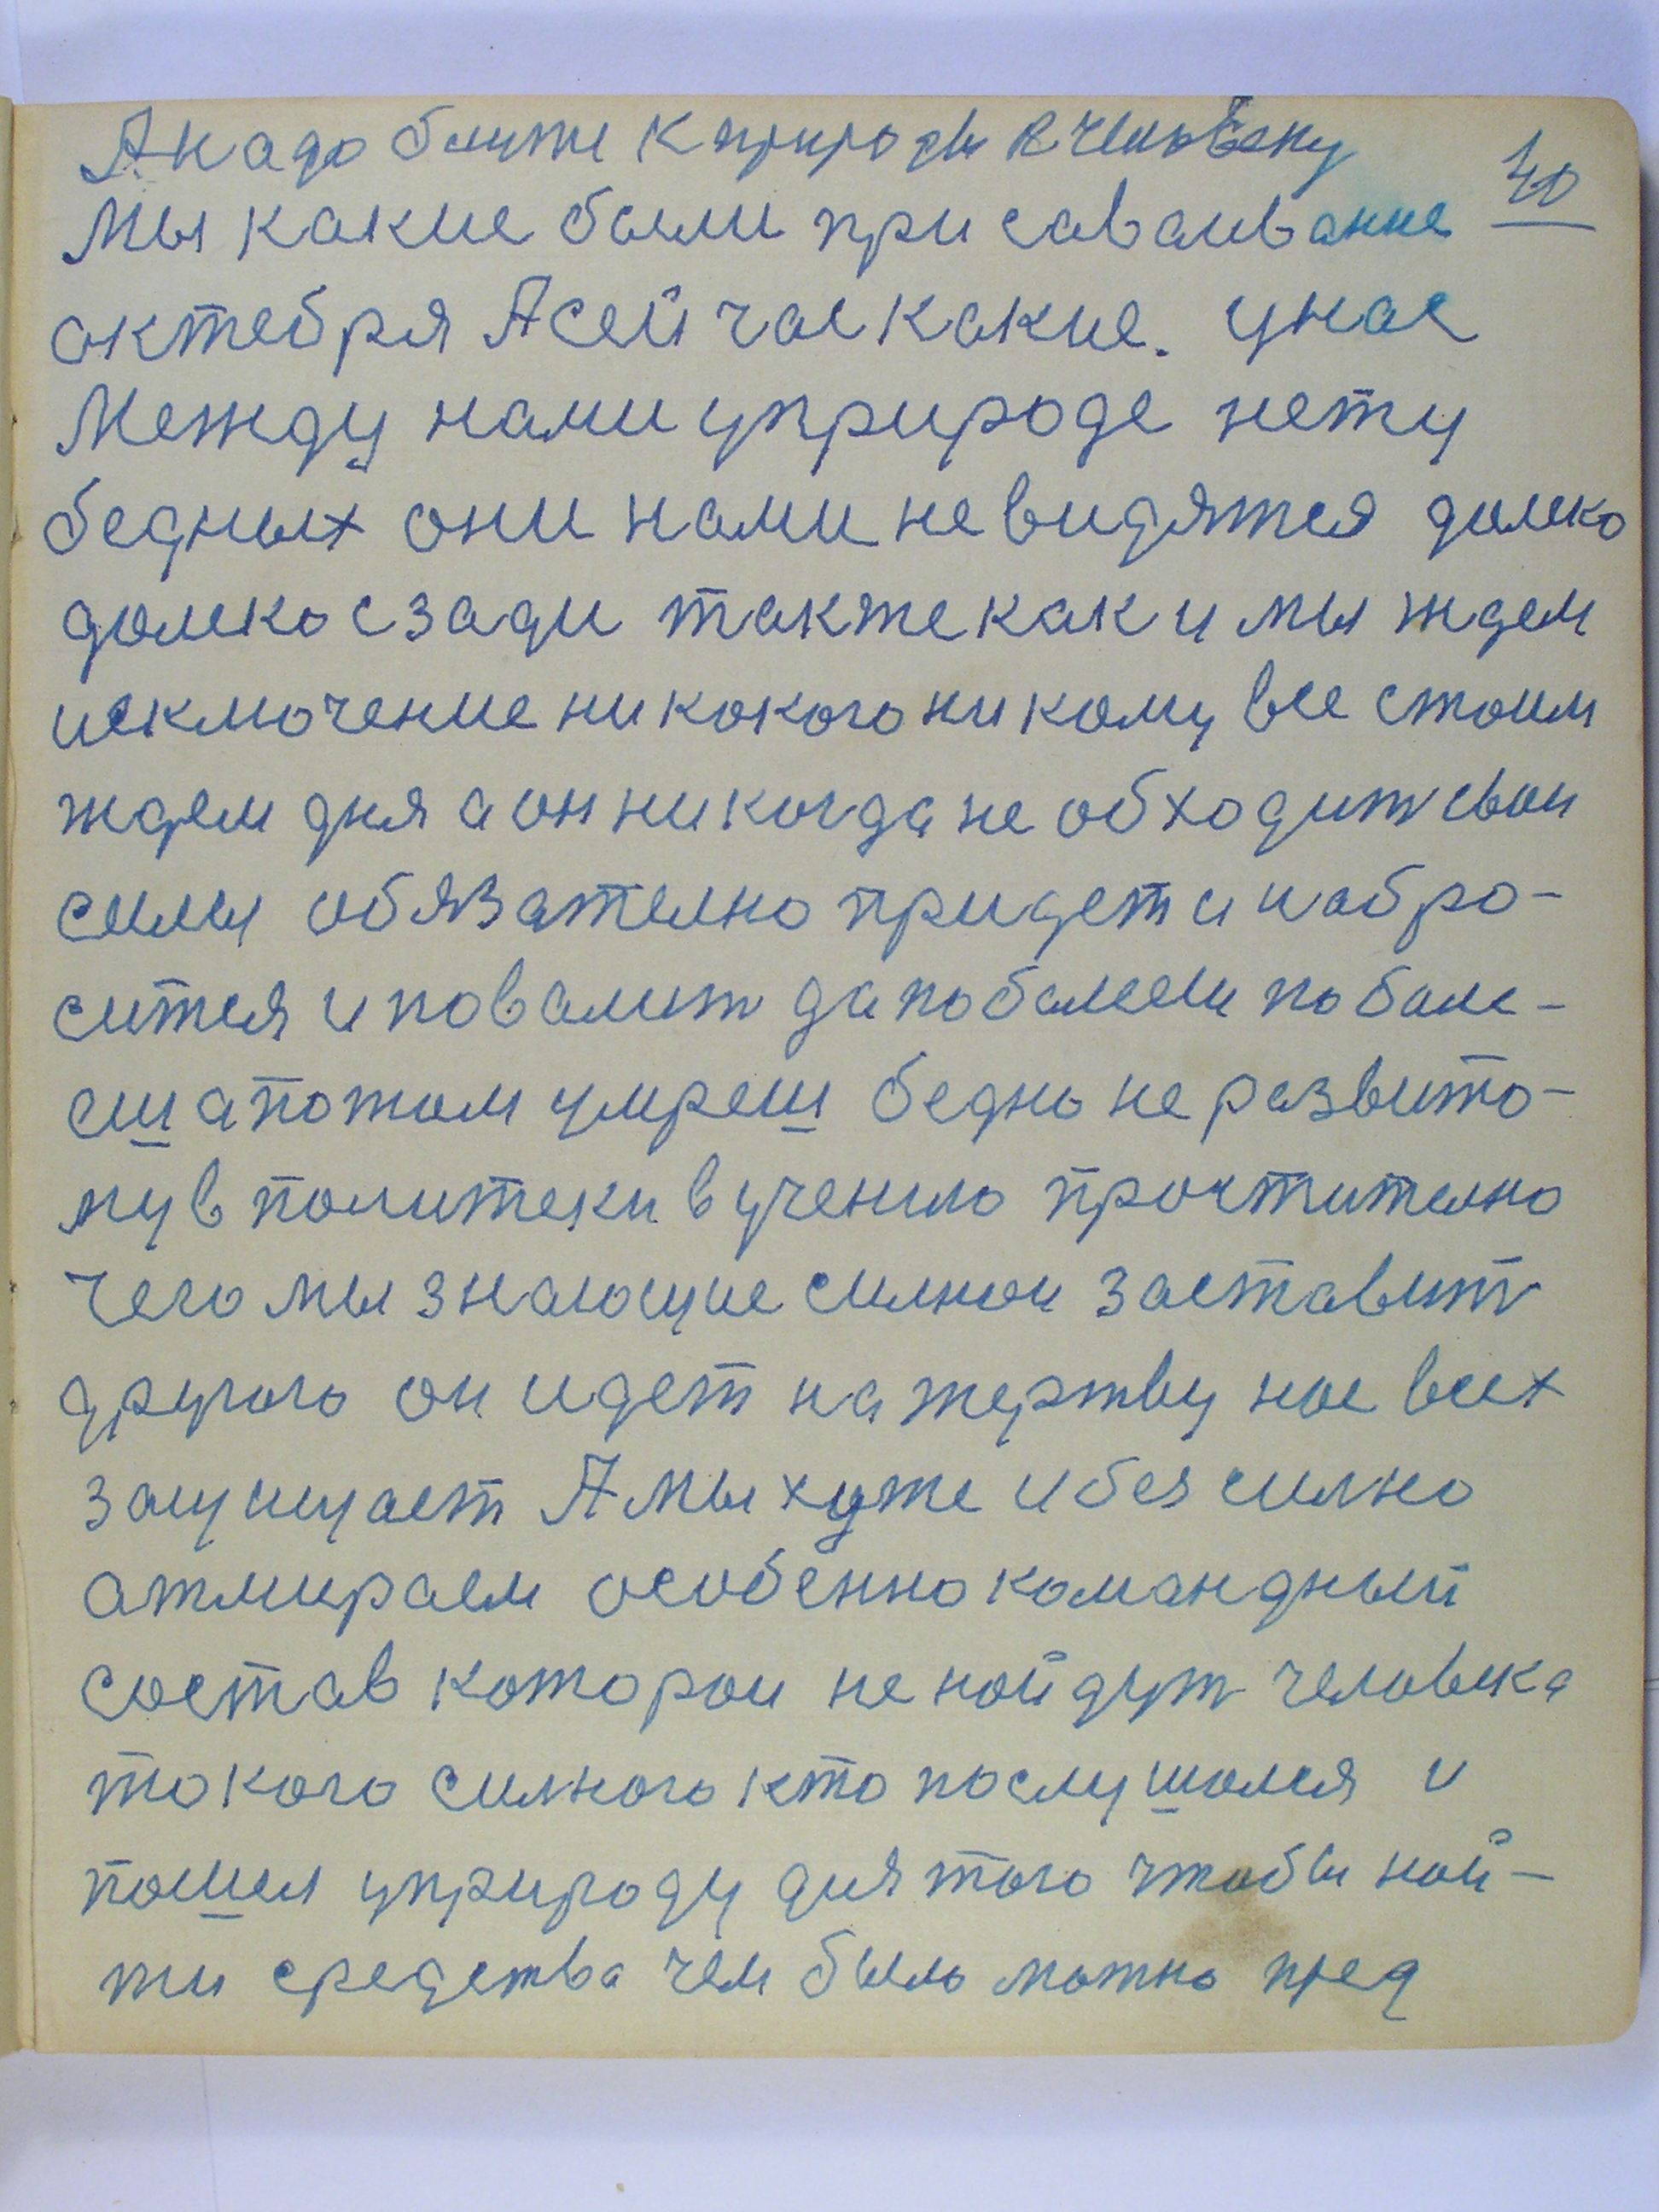 А надо ближе к природе к человеку
40
Мы какие были при саваивание
октебря А сейчас какие. унас
Между нами уприроде нету
бедных они нами не видятся далеко
далеко сзади также как и мы ждем
исключение никокого никому все стоим
ждем дня а он никогда не обходит свои
силы обязателно придет и набро-
сится и повалит да поболееш поболе-
еш а потом умреш бедно не развито-
му в политеки в учению простително
Чего мы знающие силнои заставит
другого он идет на жертву нас всех
защищает А мы хуже и безсилно
атмираем особенно командный
состав которои не найдут человека
токого силного кто послушался и
пошел уприроду для того чтобы най-
ти средства чем было можно пред